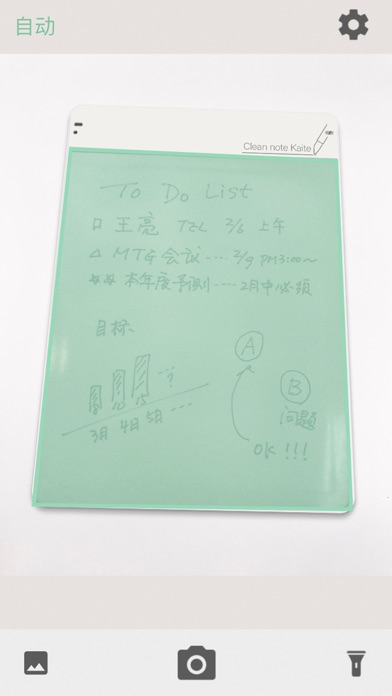 自动
Clean note Kaite
To Do List
□ 王亮 TEL 2/6 上午
△ MTG 会议 .... 2/9 PM3:00~
☆☆ 本年度予測 ..... 2月中必須
目标、
...?
3月 4月 5月 ...
A
B
问题
OK !!!